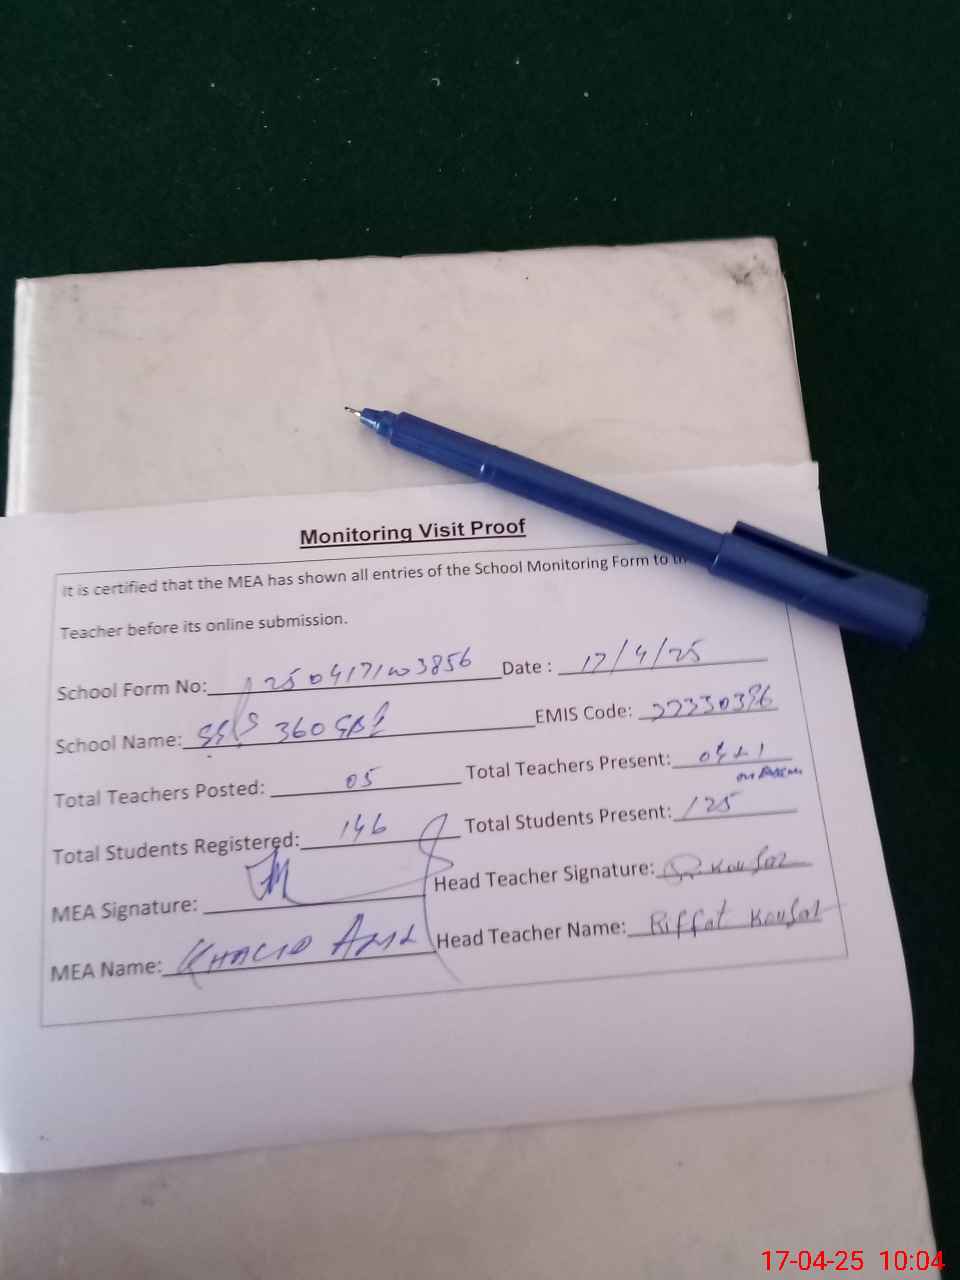 Monitoring Visit Proof
It is certified that the MEA has shown all entries of the School Monitoring Form to
Teacher before its online submission.
School Form No: Date : 17/4/25
School Name: 360 EMIS Code:
Total Teachers Posted: 05 Total Teachers Present: 04+1
Total Students Registered: 146 Total Students Present: 125
MEA Signature: Head Teacher Signature:
MEA Name: Head Teacher Name: Riffat Kausar
17-04-25 10:04